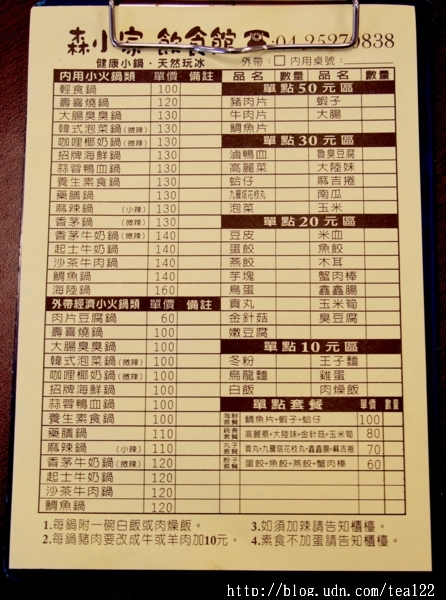 森小家 飲食館 ☎:04 25270838
健康小鍋・天然玩冰 外帶：□ 內用桌號：
內用小火鍋類 單價 備註
輕食鍋 100
壽喜燒鍋 120
大腸臭臭鍋 130
韓式泡菜鍋(微辣) 130
咖哩椰奶鍋(微辣) 130
招牌海鮮鍋 130
蒜蓉鴨血鍋 130
養生素食鍋 130
藥膳鍋 130
麻辣鍋 (小辣) 130
香茅鍋 (微辣) 130
香茅牛奶鍋(微辣) 140
起士牛奶鍋 140
沙茶牛肉鍋 140
鯛魚鍋 140
海陸鍋 160
外帶經濟小火鍋類 單價 備註
肉片豆腐鍋 60
壽喜燒鍋 100
大腸臭臭鍋 110
韓式泡菜鍋(微辣) 110
咖哩椰奶鍋(微辣) 110
招牌海鮮鍋 110
蒜蓉鴨血鍋 110
養生素食鍋 110
藥膳鍋 110
麻辣鍋 (小辣) 110
香茅牛奶鍋(微辣) 120
起士牛奶鍋 120
沙茶牛肉鍋 120
鯛魚鍋 120
品名 數量 品名 數量
單點50元區
豬肉片 蝦子
牛肉片 大腸
鯛魚片
單點30元區
滷鴨血 魯臭豆腐
高麗菜 大陸妹
蛤仔 麻吉捲
九層塔花枝丸 南瓜
泡菜 玉米
單點20元區
豆皮 米血
蛋餃 魚餃
燕餃 木耳
芋塊 蟹肉棒
鳥蛋 鑫鑫腸
貢丸 玉米筍
金針菇 臭豆腐
嫩豆腐
單點10元區
冬粉 王子麵
烏龍麵 雞蛋
白飯 肉燥飯
單點套餐 單價 數量
海鮮套餐 鯛魚片+蝦子+蛤仔 100
蔬食套餐 高麗菜+大陸妹+金針菇+玉米筍 80
丸子套餐 貢丸+九層塔花枝丸+鑫鑫腸+麻吉捲 70
餃子套餐 蛋餃+魚餃+燕餃+蟹肉棒 60
1.每鍋附一碗白飯或肉燥飯。 3.如須加辣請告知櫃檯。
2.每鍋豬肉要改成牛或羊肉加10元。 4.素食不加蛋請告知櫃檯。
http://blog.udn.com/tea122